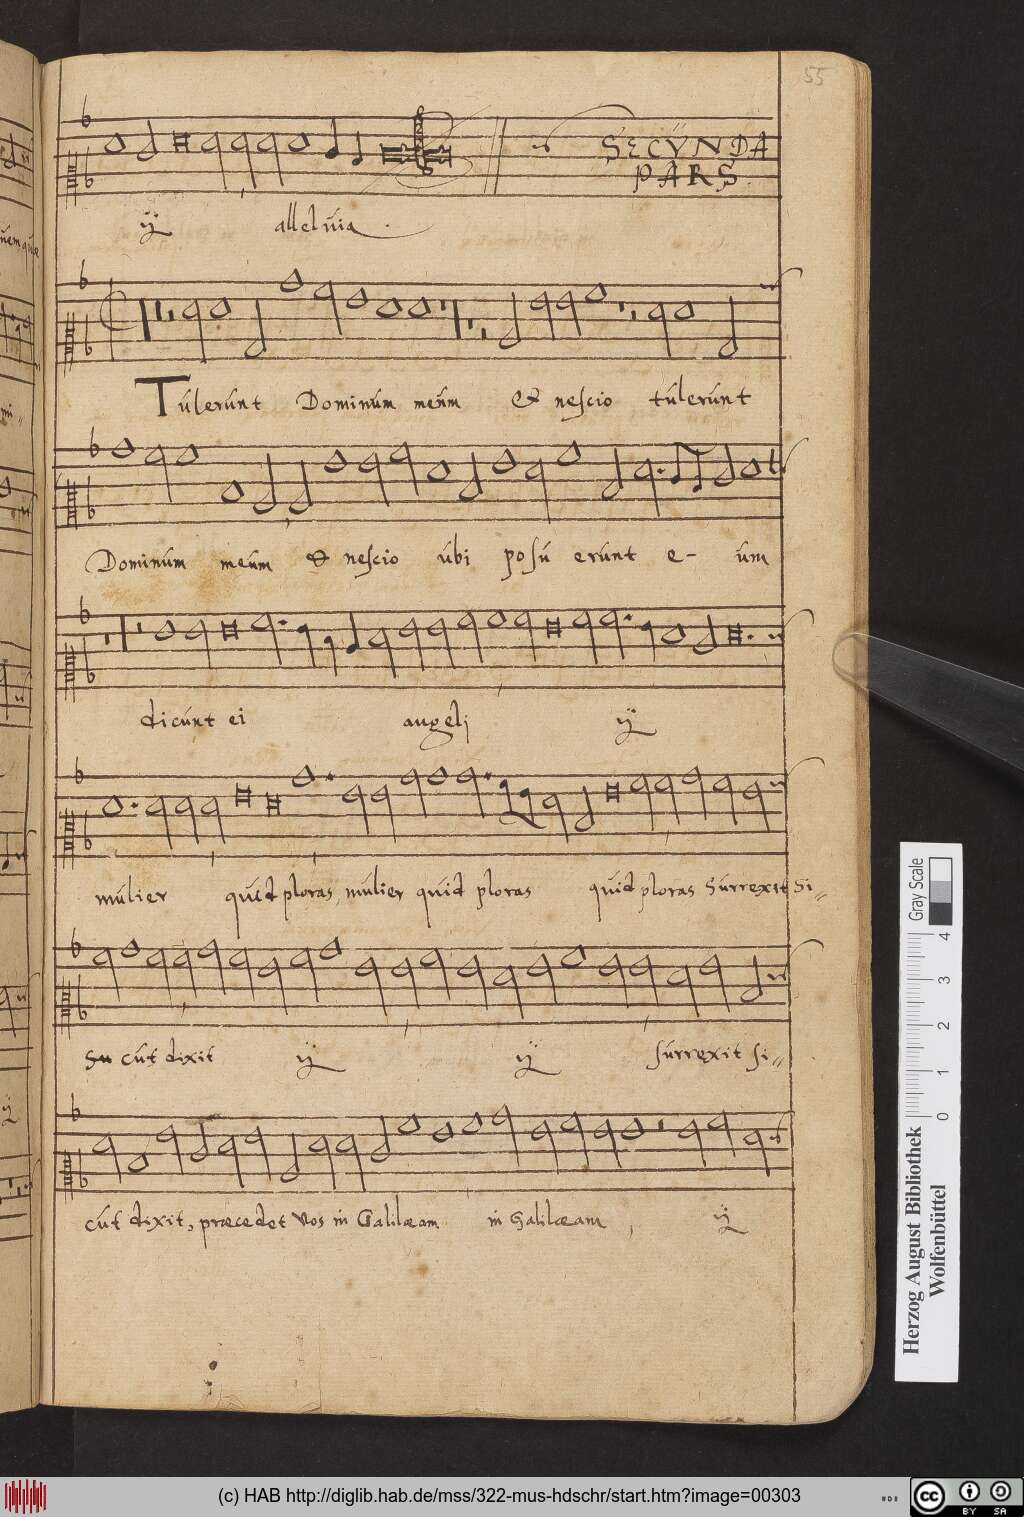 55
SECVNDA
PARS
ij alleluia
Tulerunt Dominum meum & nescio tulerunt
Dominum meum & nescio ubi posu erunt e- um
dicunt ei angeli ij
mulier quid ploras, mulier quid ploras quid ploras Surrexit Si-
cut dixit ij ij surrexit si-
cut dixit, præcedet vos in Galilæam in Galilæam, ij
Gray Scale
0 1 2 3 4
Herzog August Bibliothek
Wolfenbüttel
(c) HAB http://diglib.hab.de/mss/322-mus-hdschr/start.htm?image=00303
cc BY SA